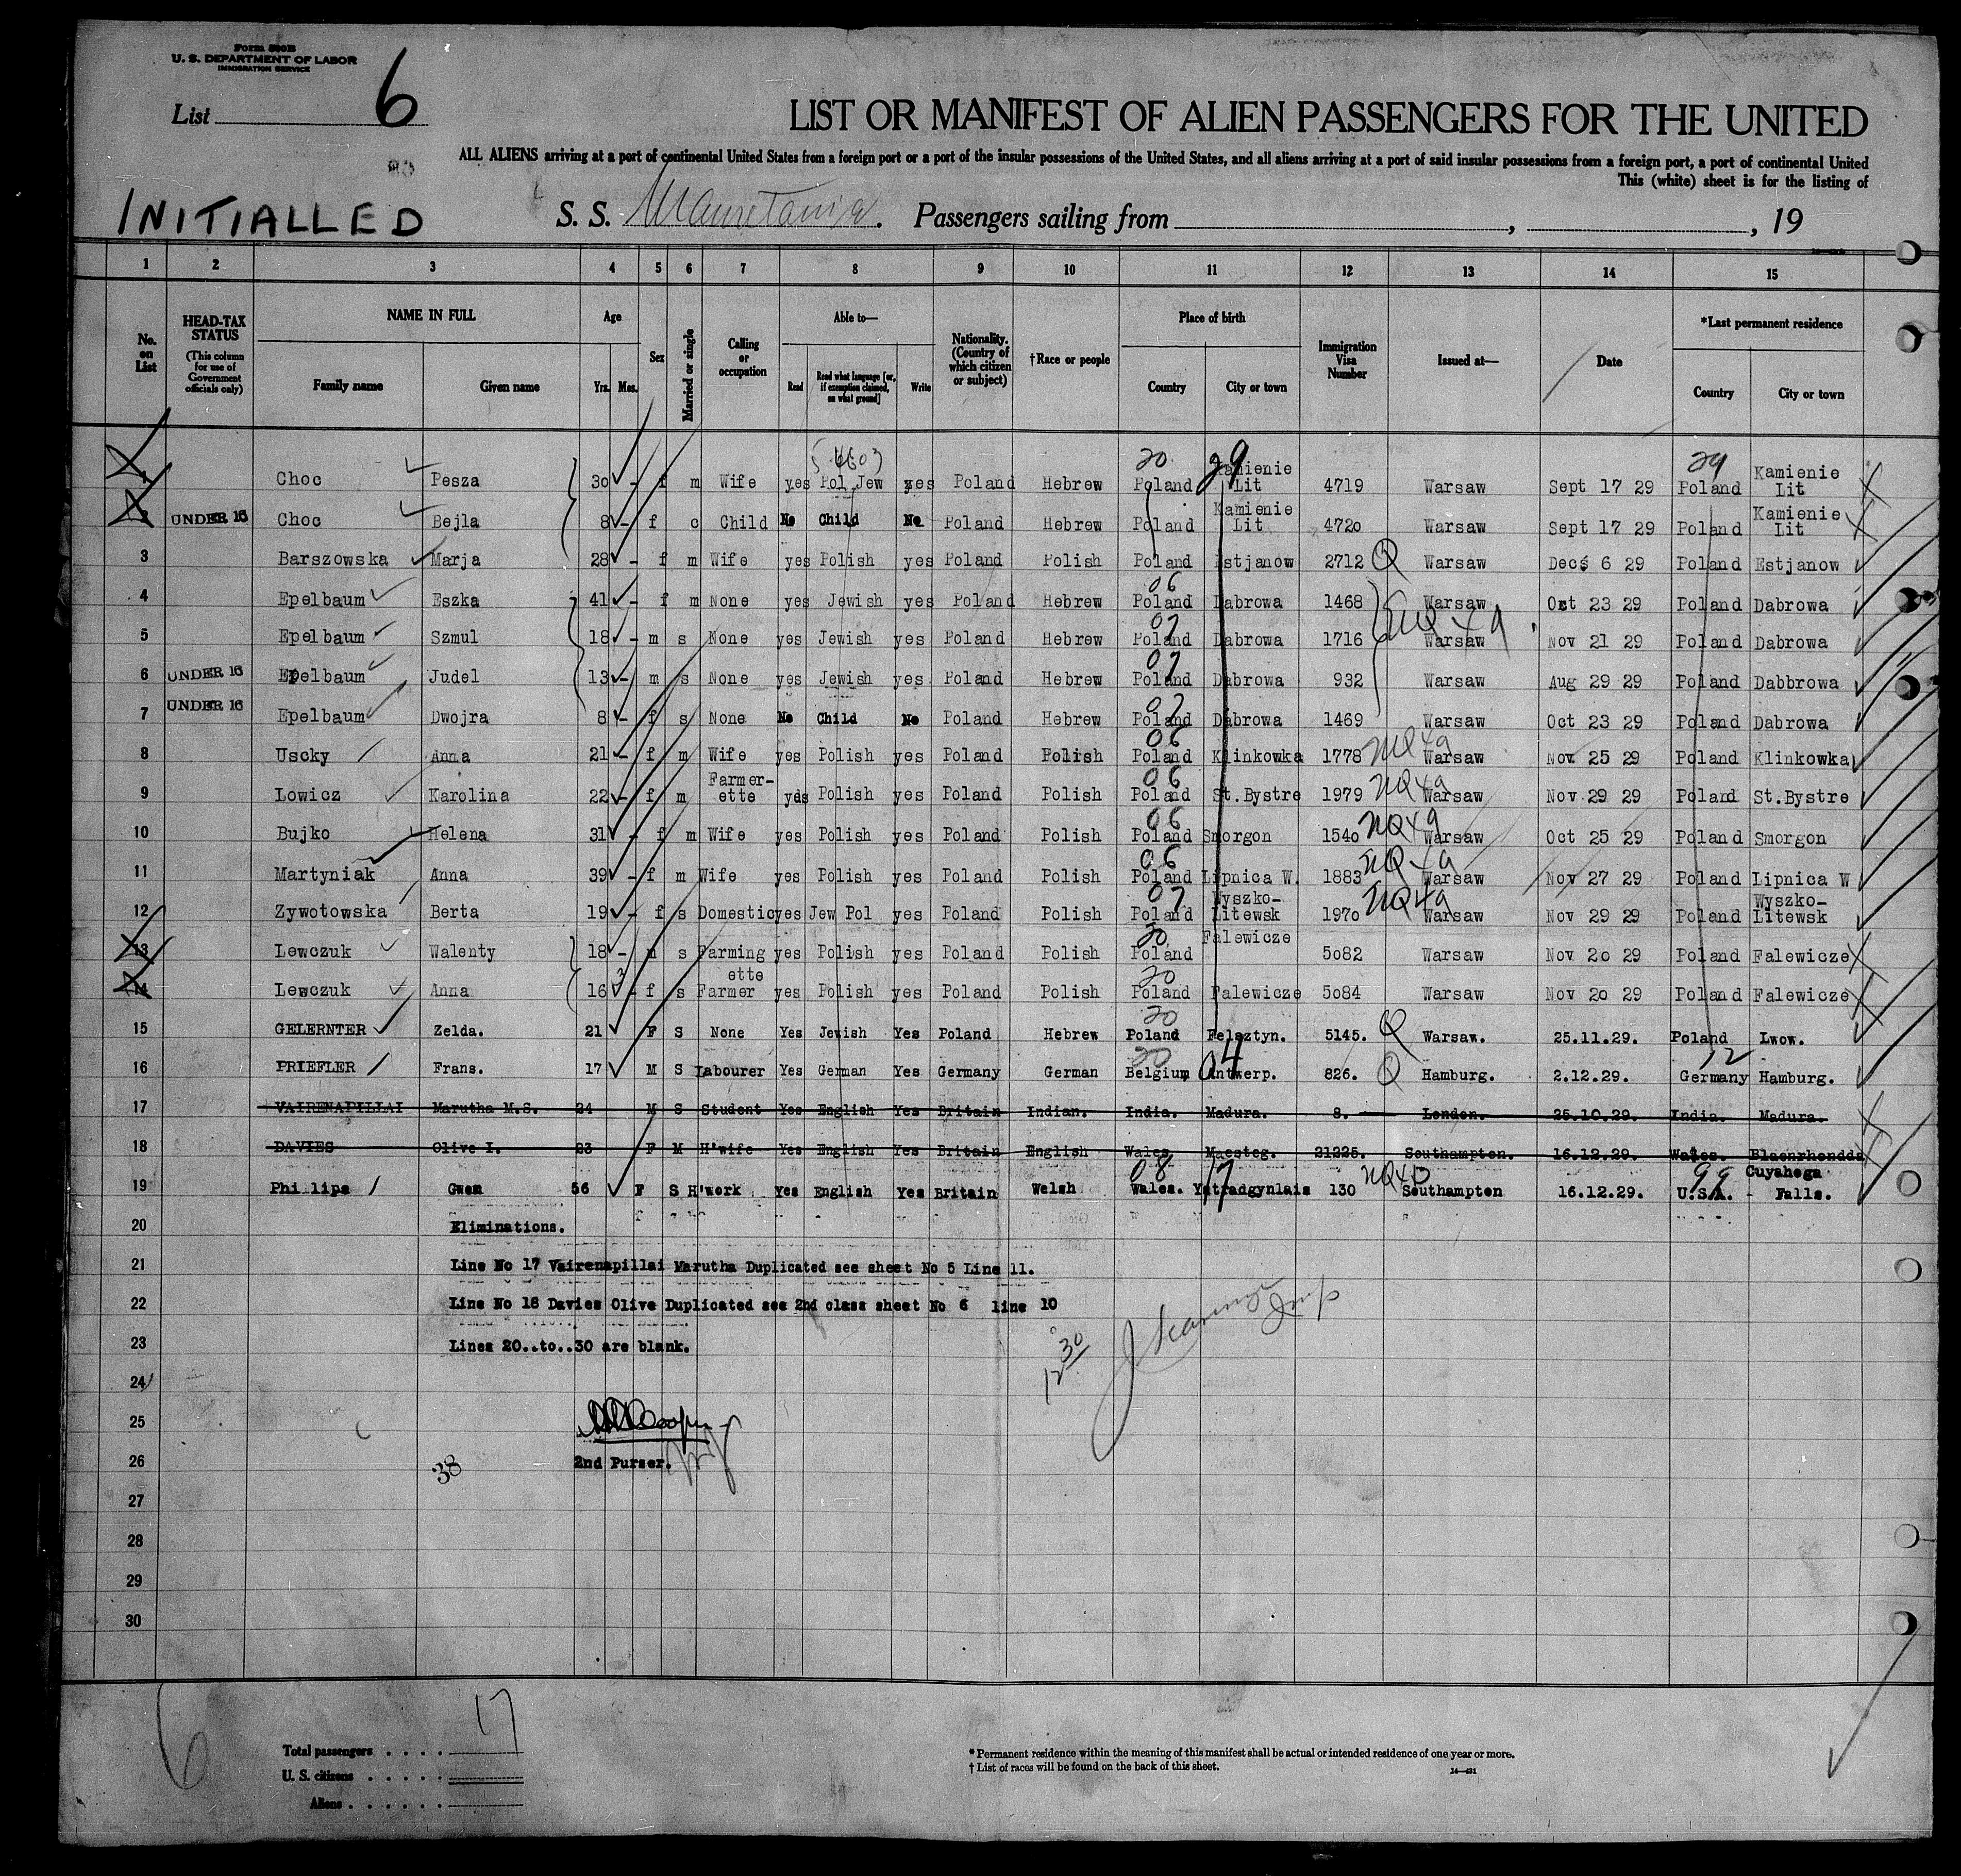 Form 500B
U. S. DEPARTMENT OF LABOR
IMMIGRATION SERVICE
List 6
LIST OR MANIFEST OF ALIEN PASSENGERS FOR THE UNITED
ALL ALIENS arriving at a port of continental United States from a foreign port or a port of the insular possessions of the United States, and all aliens arriving at a port of said insular possessions from a foreign port, a port of continental United
This (white) sheet is for the listing of
INITIALLED
S. S. Mauretania. Passengers sailing from , , 19
1 2 3 4 5 6 7 8 9 10 11 12 13 14 15
No. on List
HEAD-TAX STATUS (This column for use of Government officials only)
NAME IN FULL
Family name Given name
Age
Yrs. Mos.
Sex
Married or single
Calling or occupation
Able to—
Read Read what language [or, if exemption claimed, on what ground] Write
Nationality. (Country of which citizen or subject)
†Race or people
Place of birth
Country City or town
Immigration Visa Number
Issued at—
Date
*Last permanent residence
Country City or town
20 29 29
1 Choc Pesza 30 - f m Wife yes Pol Jew yes Poland Hebrew Poland Kamienie Lit 4719 Warsaw Sept 17 29 Poland Kamienie Lit
2 UNDER 16 Choc Bejla 8 - f c Child No Child No Poland Hebrew Poland Kamienie Lit 4720 Warsaw Sept 17 29 Poland Kamienie Lit
3 Barszowska Marja 28 - f m Wife yes Polish yes Poland Polish Poland Estjanow 2712 Q Warsaw Dec 6 29 Poland Estjanow
4 Epelbaum Eszka 41 - f m None yes Jewish yes Poland Hebrew 06 Poland Dabrowa 1468 Warsaw Oct 23 29 Poland Dabrowa
5 Epelbaum Szmul 18 - m s None yes Jewish yes Poland Hebrew 07 Poland Dabrowa 1716 NQ 4a Warsaw Nov 21 29 Poland Dabrowa
6 UNDER 16 Epelbaum Judel 13 - m s None yes Jewish yes Poland Hebrew 07 Poland Dabrowa 932 Warsaw Aug 29 29 Poland Dabbrowa
7 UNDER 16 Epelbaum Dwojra 8 - f s None No Child No Poland Hebrew 07 Poland Dabrowa 1469 Warsaw Oct 23 29 Poland Dabrowa
8 Uscky Anna 21 - f m Wife yes Polish yes Poland Polish 06 Poland Klinkowka 1778 NQ 4a Warsaw Nov 25 29 Poland Klinkowka
9 Lowicz Karolina 22 - f m Farmer-ette yes Polish yes Poland Polish 06 Poland St.Bystre 1979 NQ 4a Warsaw Nov 29 29 Poland St.Bystre
10 Bujko Helena 31 - f m Wife yes Polish yes Poland Polish 06 Poland Smorgon 1540 NQ 4a Warsaw Oct 25 29 Poland Smorgon
11 Martyniak Anna 39 - f m Wife yes Polish yes Poland Polish 06 Poland Lipnica W. 1883 NQ 4a Warsaw Nov 27 29 Poland Lipnica W
12 Zywotowska Berta 19 - f s Domestic yes Jew Pol yes Poland Polish 07 Poland Wyszko-Litewsk 1970 NQ 4a Warsaw Nov 29 29 Poland Wyszko-Litewsk
13 Lewczuk Walenty 18 - m s Farming yes Polish yes Poland Polish 20 Poland Falewicze 5082 Warsaw Nov 20 29 Poland Falewicze
14 Lewczuk Anna 16 - f s Farmer ette yes Polish yes Poland Polish 20 Poland Falewicze 5084 Warsaw Nov 20 29 Poland Falewicze
15 GELERNTER Zelda. 21 F S None Yes Jewish Yes Poland Hebrew 20 Poland Felsztyn. 5145. Q Warsaw. 25.11.29. Poland Lwow.
16 PRIEFLER Frans. 17 M S Labourer Yes German Yes Germany German 20 Belgium 04 Antwerp. 826. Q Hamburg. 2.12.29. 12 Germany Hamburg.
17 VAIRENAPILLAI Marutha M.S. 24 M S Student Yes English Yes Britain Indian. India. Madura. 8. London. 25.10.29. India. Madura.
18 DAVIES Olive I. 23 F M H'wife Yes English Yes Britain English Wales, Maesteg. 21225. Southampton. 16.12.29. Wales. Blaenrhondda
19 Phillips Gwen 56 F S H'work Yes English Yes Britain Welsh 08 Wales. 17 Ystradgynlais 130 NQ4D Southampton 16.12.29. 99 U.S.A. - Cuyahoga Falls.
20 Eliminations.
21 Line No 17 Vairenapillai Marutha Duplicated see sheet No 5 Line 11.
22 Line No 18 Davies Olive Duplicated see 2nd class sheet No 6 line 10
23 Lines 20..to..30 are blank.
12 30
24
25
26 38 2nd Purser.
27
28
29
30
6
Total passengers . . . . 17
U. S. citizens . . . . .
Aliens . . . . . .
* Permanent residence within the meaning of this manifest shall be actual or intended residence of one year or more.
† List of races will be found on the back of this sheet.
14—431